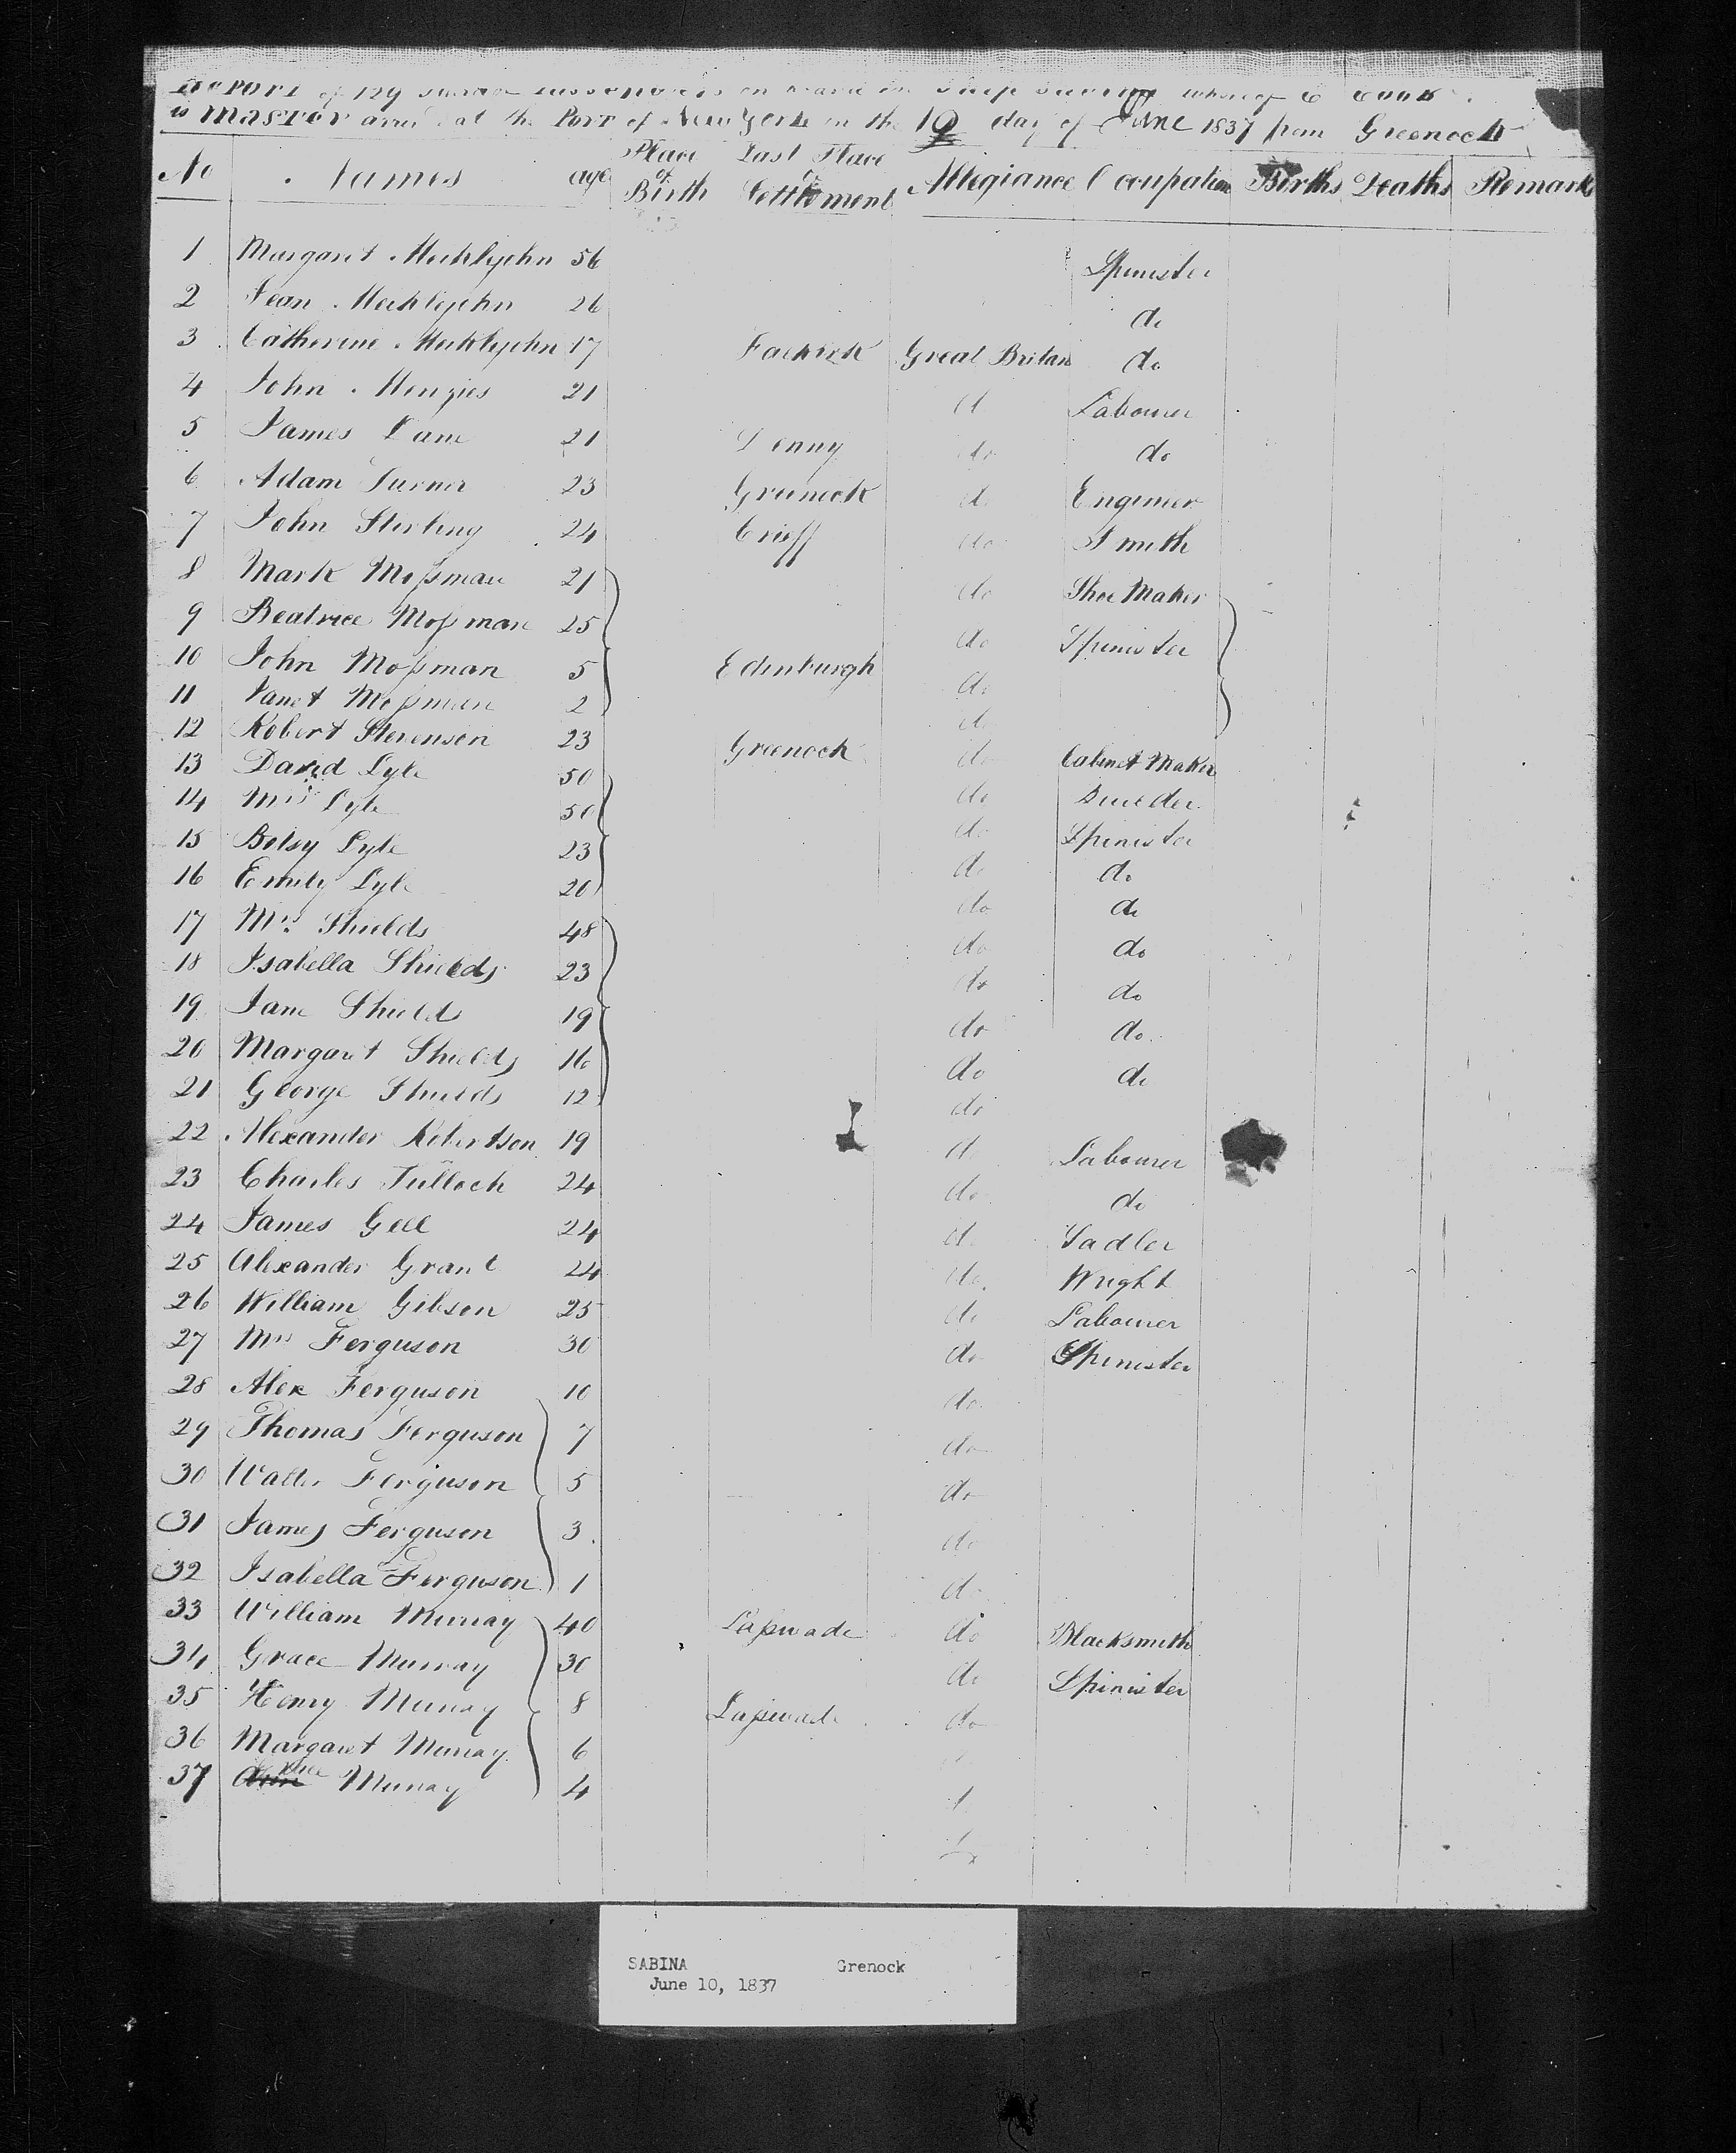 REPORT of 129 Passengers on board the Ship Sabina whereof C Cook
is MASTER at the Port of New York on the 10 day of June 1837 from Greenock
No Names age Place of Birth Last Place of Settlement Allegiance Occupation Births Deaths Remarks
1 Margaret Meiklejohn 56 Spinister
2 Jean Meiklejohn 26 do
3 Catherine Meiklejohn 17 Falkirk Great Britan do
4 John Menzies 21 d Labourer
5 James 21 Denny do do
6 Adam Turner 23 Greenock d. Engineer
7 John Stirling 24 Crieff do Smith
8 Mark Moſsman 21 do Shoe Maker
9 Beatrice Moſsman 25 do Spinister
10 John Moſsman 5 Edinburgh do
11 Janet Moſsman 2 do
12 Robert Stevenson 23 Greenock do Cabinet Maker
13 David Lyle 50 do Builder
14 Mrs Lyle 50 do Spinister
15 Betsy Lyle 23 do do
16 Emily Lyle 20 do do
17 Mrs Shields 48 do do
18 Isabella Shields 23 do do
19 Jane Shields 19 do do
20 Margaret Shields 16 do do
21 George Shields 12 do
22 Alexander Robertson 19 d. Labourer
23 Charles Tulloch 24 do do
24 James Gell 24 d. Sadler
25 Alexander Grant 24 do. Wright
26 William Gibson 25 do Labourer
27 Mrs Ferguson 30 do Spinister
28 Alex Ferguson 10 do
29 Thomas Ferguson 7 do
30 Walter Ferguson 5 do
31 James Ferguson 3 do
32 Isabella Ferguson 1 do
33 William Murray 40 Laſswade do Blacksmith
34 Grace Murray 30 do Spinister
35 Henry Murray 8 Laſswade do
36 Margaret Murray 6
37 Murray 4
SABINA Grenock
June 10, 1837